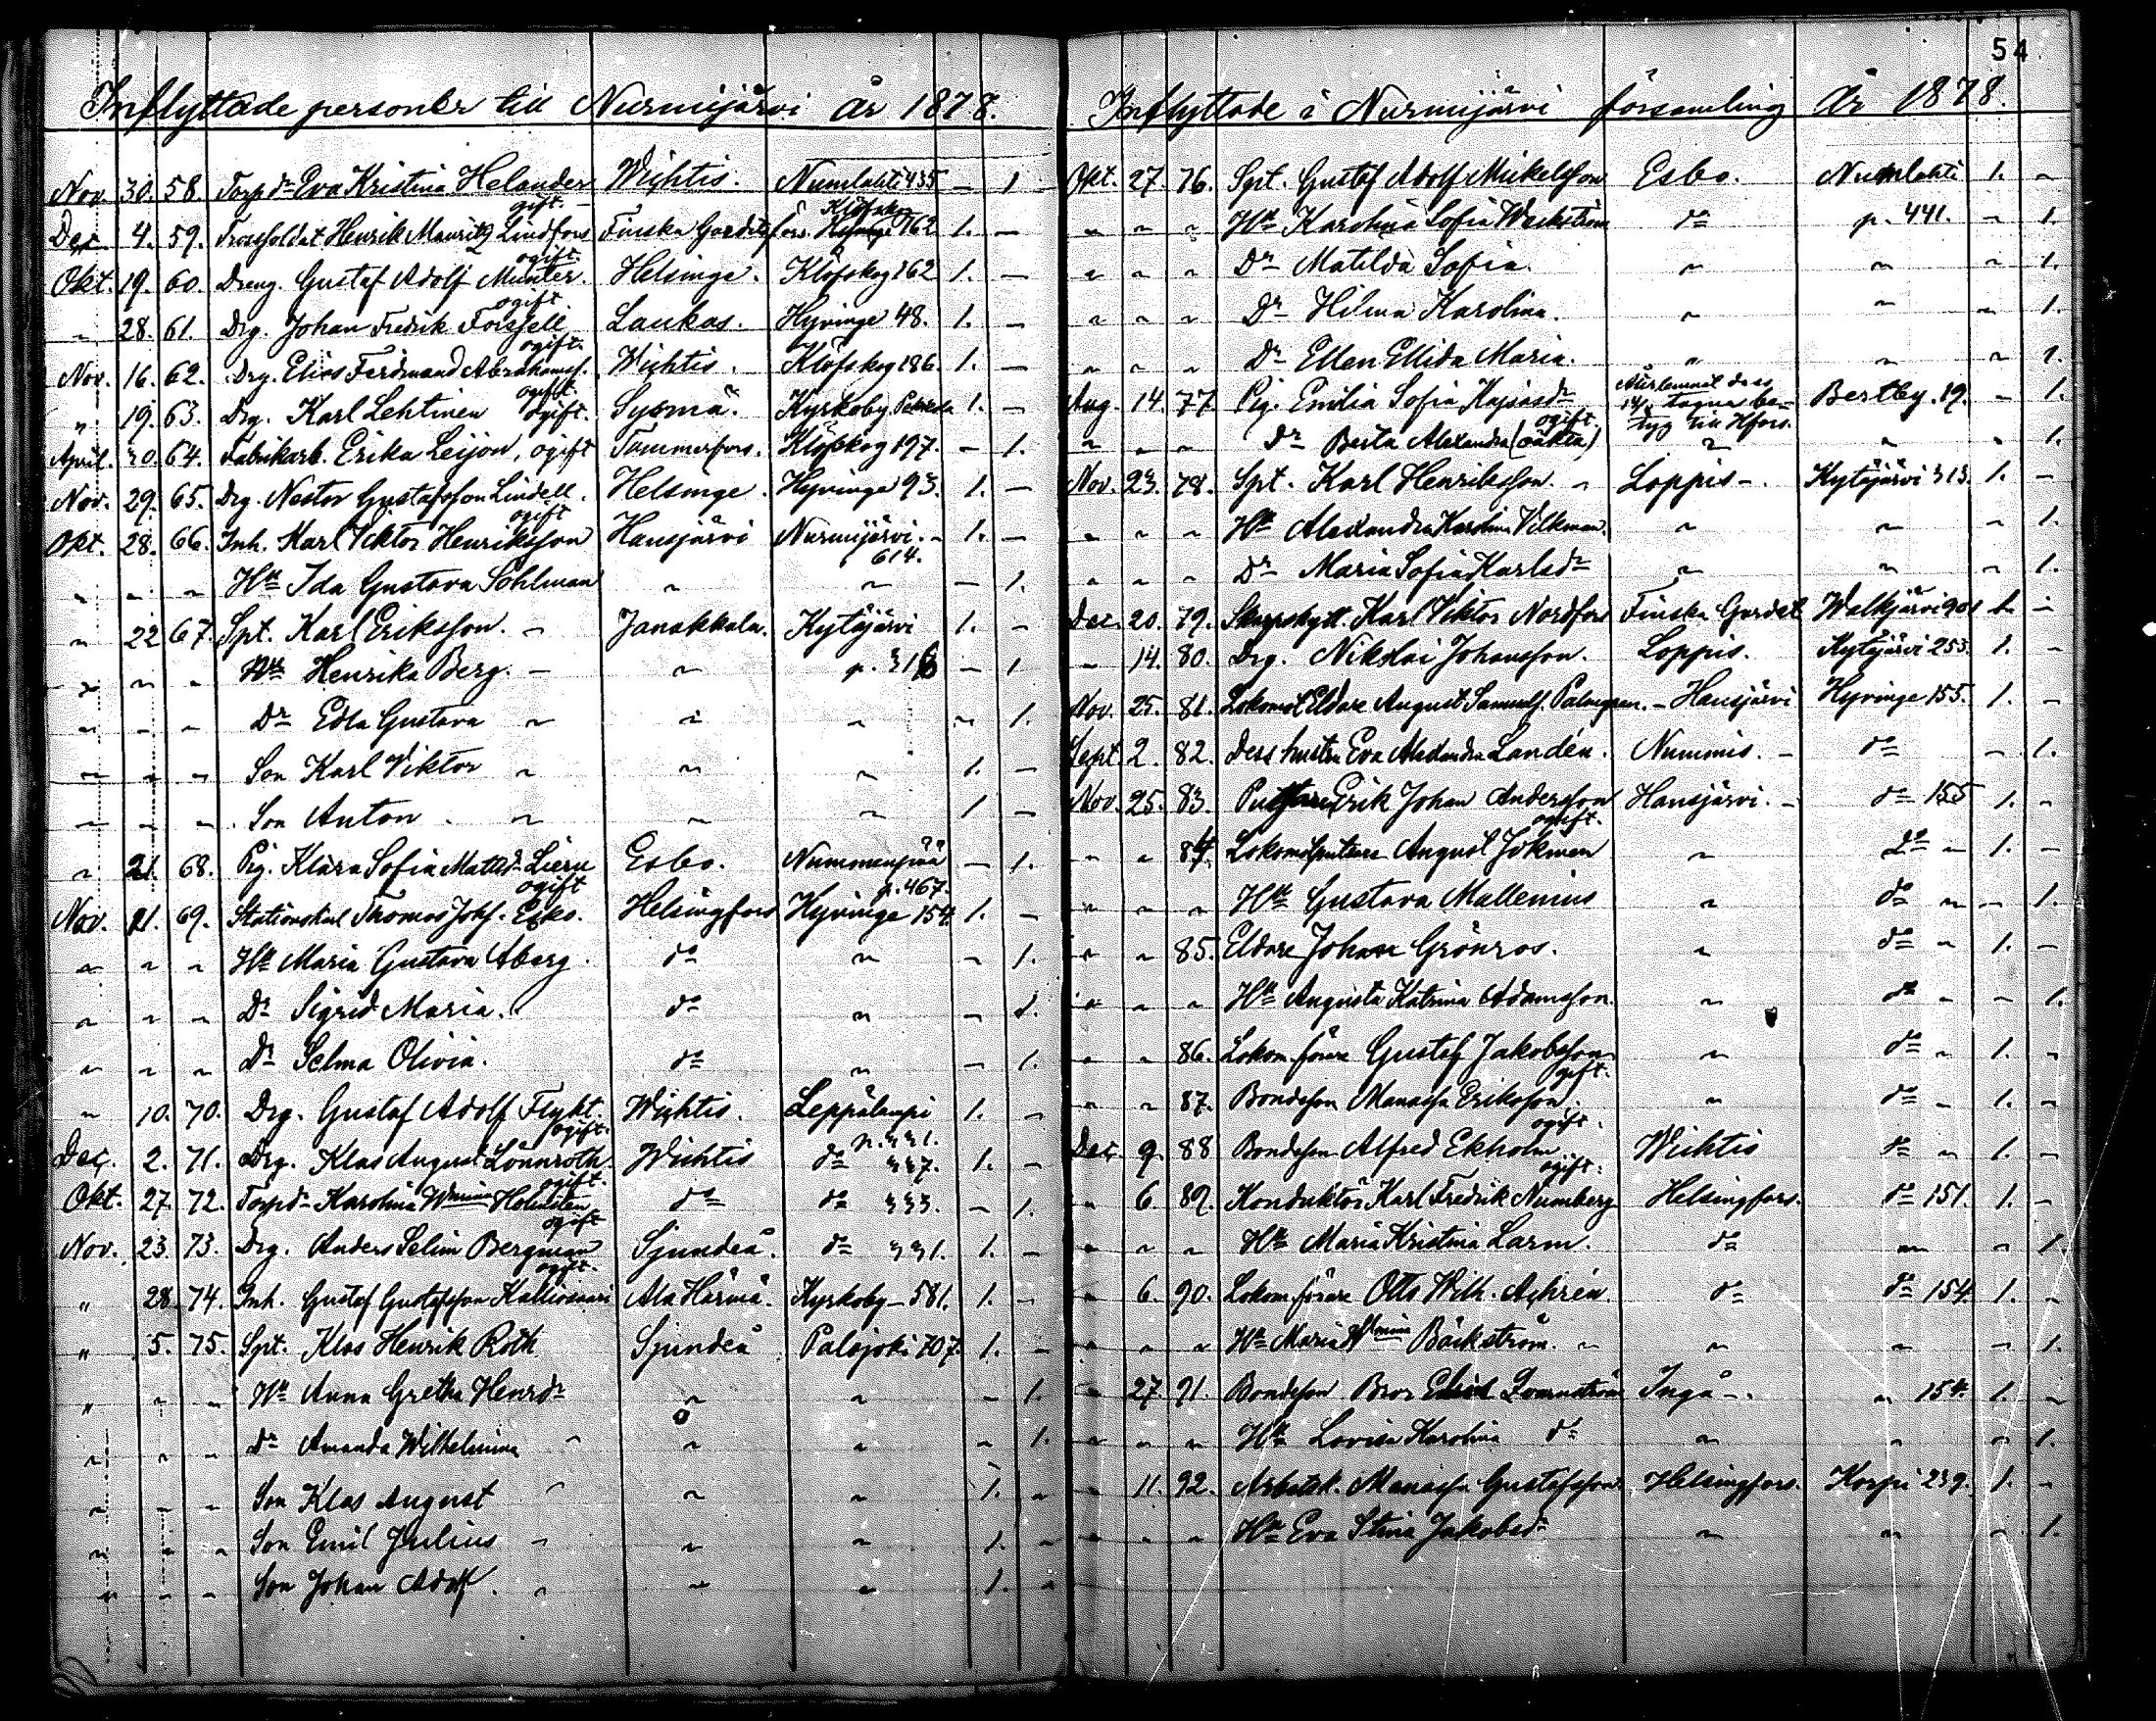 Inflyttade personer till Nurmijärvi år 1878.
Nov. 30. 58. Torpdr Eva Kristina Helander gift. Wichtis. Numlahti 435 – 1
Dec 4. 59. Henrik Mauritz Lindfors ogift. Finska Gardet Klöfskog 162 1. –
Okt. 19. 60. Dreng. Gustaf Adolf Munter. ogift. Helsinge. Klöfskog 162 1. –
" 28. 61. Drg. Johan Fredrik Forsfell ogift. Laukas. Hyvinge 48. 1. –
Nov. 16. 62. Drg. Elias Ferdinand Abrahamsf. ogift. Wichtis. Klöfskog 186. 1. –
" 19. 63. Drg. Karl Lehtinen ogift. Sysmä. Kyrkoby 1. –
April. 30. 64. Fabrikarb. Erika Leijon, ogift Tammerfors. Klöfskog 197. – 1.
Nov. 29. 65. Drg. Nestor Gustafsson Lindell. ogift Helsinge. Hyvinge 93. 1. –
Okt. 28. 66. Inh. Karl Viktor Henriksson Hausjärvi Nurmijärvi. 614. 1. –
" " " Hu Ida Gustava Sohlman " " – 1.
" 22 67. Spt. Karl Eriksson. – Janakkala. Kytäjärvi 1. –
" " " Hu Henrika Berg. – " p. 318 – 1
" " " Dr Edla Gustava " " " " 1.
" " " Son Karl Viktor " " " 1. –
" " " Son Anton " " " 1 –
" 21. 68. Pig. Klara Sofia Mattsdr Lieru ogift Esbo. Nummenpää p. 467. – 1.
Nov. 21. 69. Stationskarl Thomas Johs. Esko. Helsingfors Hyvinge 154. 1. –
" " " Hu Maria Gustava Åberg. do " – 1.
" " " Dr Sigrid Maria. do " – 1.
" " " Dr Selma Olivia. do " – 1.
" 10. 70. Drg. Gustaf Adolf Flykt. ogift. Wichtis. Leppälampi p. 331. 1. –
Dec. 2. 71. Drg. Klas August Lönnroth. ogift. Wichtis do 337. 1. –
Okt. 27. 72. Torpdr Karolina Wmina Holmsten ogift do do 333. – 1.
Nov. 23. 73. Drg. Anders Selim Bergman ogift. Sjundeå. do 331. 1. –
" 28. 74. Inh. Gustaf Gustafsson Ala Härmä. Kyrkoby – 581. 1. –
" 5. 75. Spt. Klas Henrik Roth Sjundeå Palojoki 707. 1. –
" " " Hu Anna Gretha Henrdr " " – 1.
" " " Dr Amanda Wilhelmina " " " " 1.
" " " Son Klas August " " " 1. "
" " " Son Emil Julius – " " 1. "
" " " Son Johan Adolf. " " " 1. "
54.
Inflyttade i Nurmijärvi församling år 1878.
Okt. 27. 76. Spt. Gustaf Adolf Mickelsson Esbo. Numlahti 1. –
" " " Hu Karolina Sofia Weckström do p. 441. – 1.
" " " Dr Matilda Sofia. " " " 1.
" " " Dr Hilma Karolina. " " " 1.
" " " Dr Ellen Ellida Maria. " " " 1.
Aug. 14. 77. Pig. Emilia Sofia Kajsasdr ogift. dess tagna betyg till Hfors. Bertby. 19. – 1.
" " " Dr Berta Alexandra (oäkta) " " " 1.
Nov. 23. 78. Spt. Karl Henriksson. " Loppis –. Kytäjärvi 313. 1. –
" " " Hu Alexandra Karolina Vilkman. " " " 1.
" " " Dr Maria Sofia Karlsdr " " " 1.
Dec. 20. 79. Skarpskytt. Karl Viktor Nordfors Finska Gardet Walkjärvi 901 1. –
" 14. 80. Drg. Nikolai Johansson. Loppis. Kytäjärvi 253. 1. –
Nov. 25. 81. Lokomot Eldare August Samuelf. Palmgren. – Hausjärvi Hyvinge 155. 1. –
Sept. 2. 82. Dess hustru Eva Alexandra Landén. Nummis. – do – 1.
Nov. 25. 83. Putsare Erik Johan Andersson ogift. Hausjärvi. – do 155 1. –
" " 84. Lokomotputsare August Jokinen " do " 1. –
" " " Hu Gustava Mallenius " do " – 1.
" " 85. Eldare Johan Grönros. " do " 1. –
" " " Hu Augusta Katrina Adamsson. " do " – 1.
" " 86. Lokom. förare Gustaf Jakobsson gift. " do " 1. –
" " 87. Bondeson Manasse Eriksson. ogift. " do – 1. –
Dec. 9. 88 Bondeson Alfred Ekholm ogift. Wichtis do " 1. –
" 6. 89. Konduktör Karl Fredrik Numberg Helsingfors. do 151. 1. –
" " " Hu Maria Kristina Larm. do " " 1
" 6. 90. Lokom. förare Otto Wilh. Achrén do do 154. 1. –
" " " Hu Maria Wlmina Bäckström. " " " – 1.
" 27. 91. Bondeson Bror Ingå –. " 154. 1. "
" " " Hu Lovisa Karolina do " " " 1.
" 11. 92. Arbetsk. Manasse Gustafsson Helsingfors. Korpi 239. 1. –
" " " Hu Eva Stina Jakobsdr " " " 1.